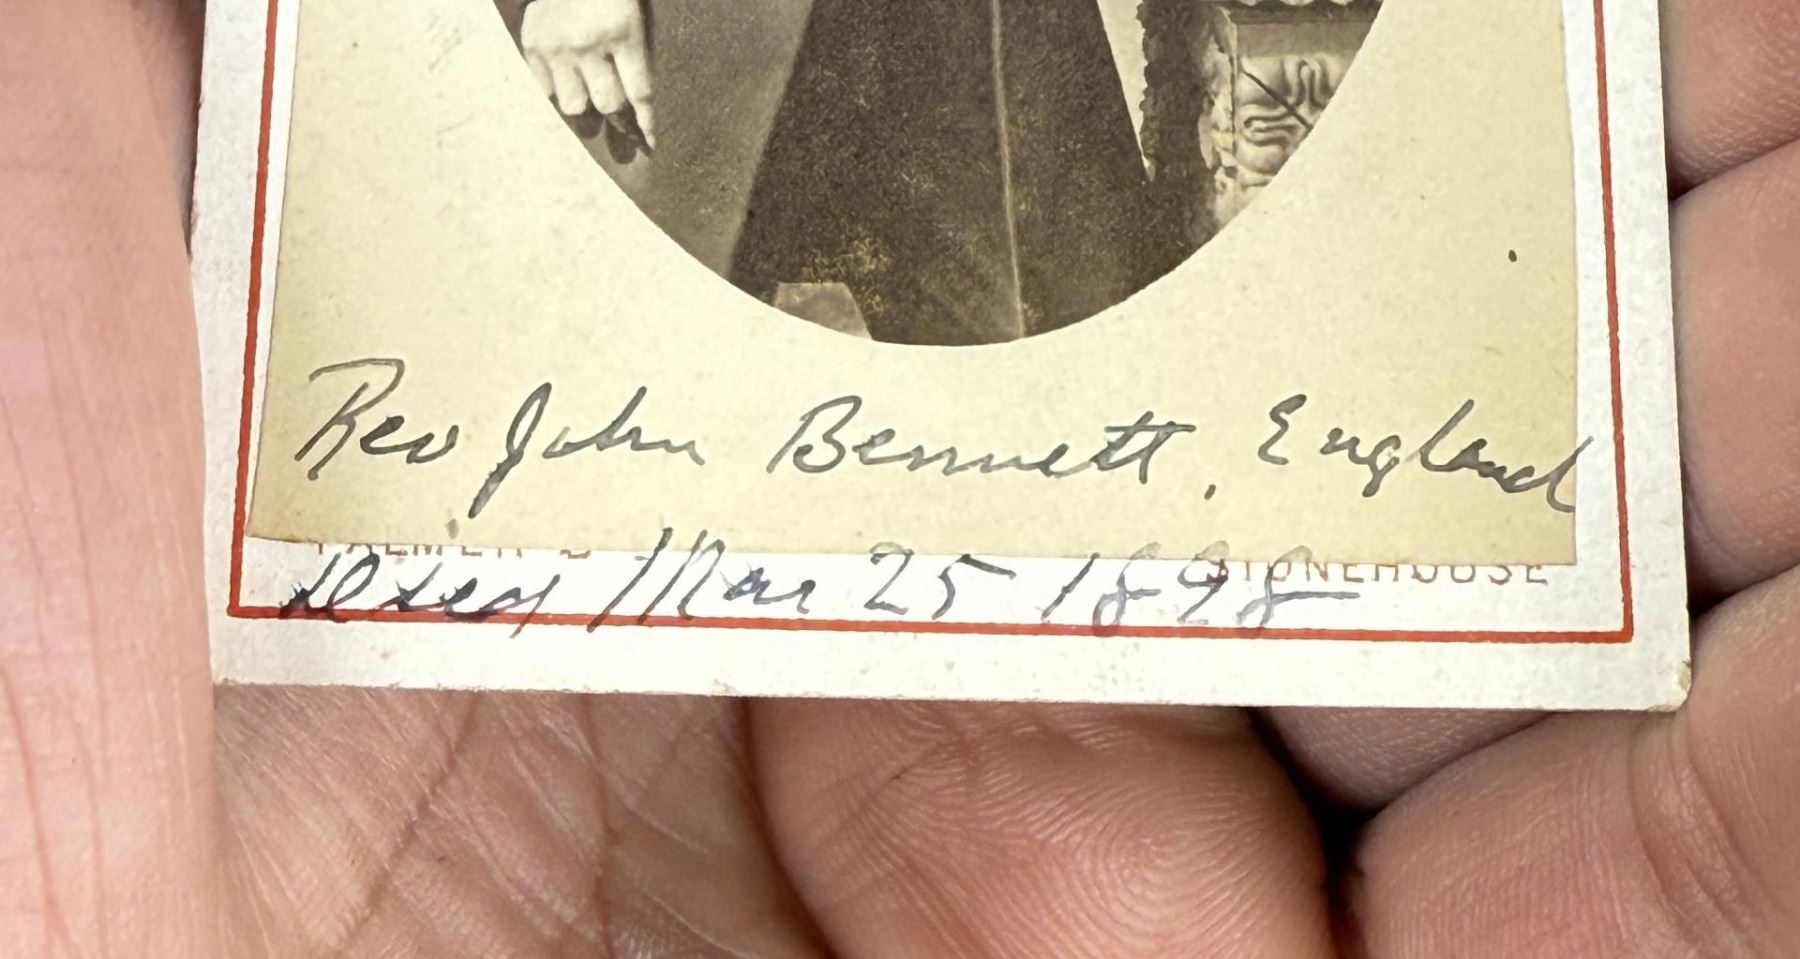 Rev John Bennett, England
PALMER
STONEHOUSE
Died Mar 25 1898